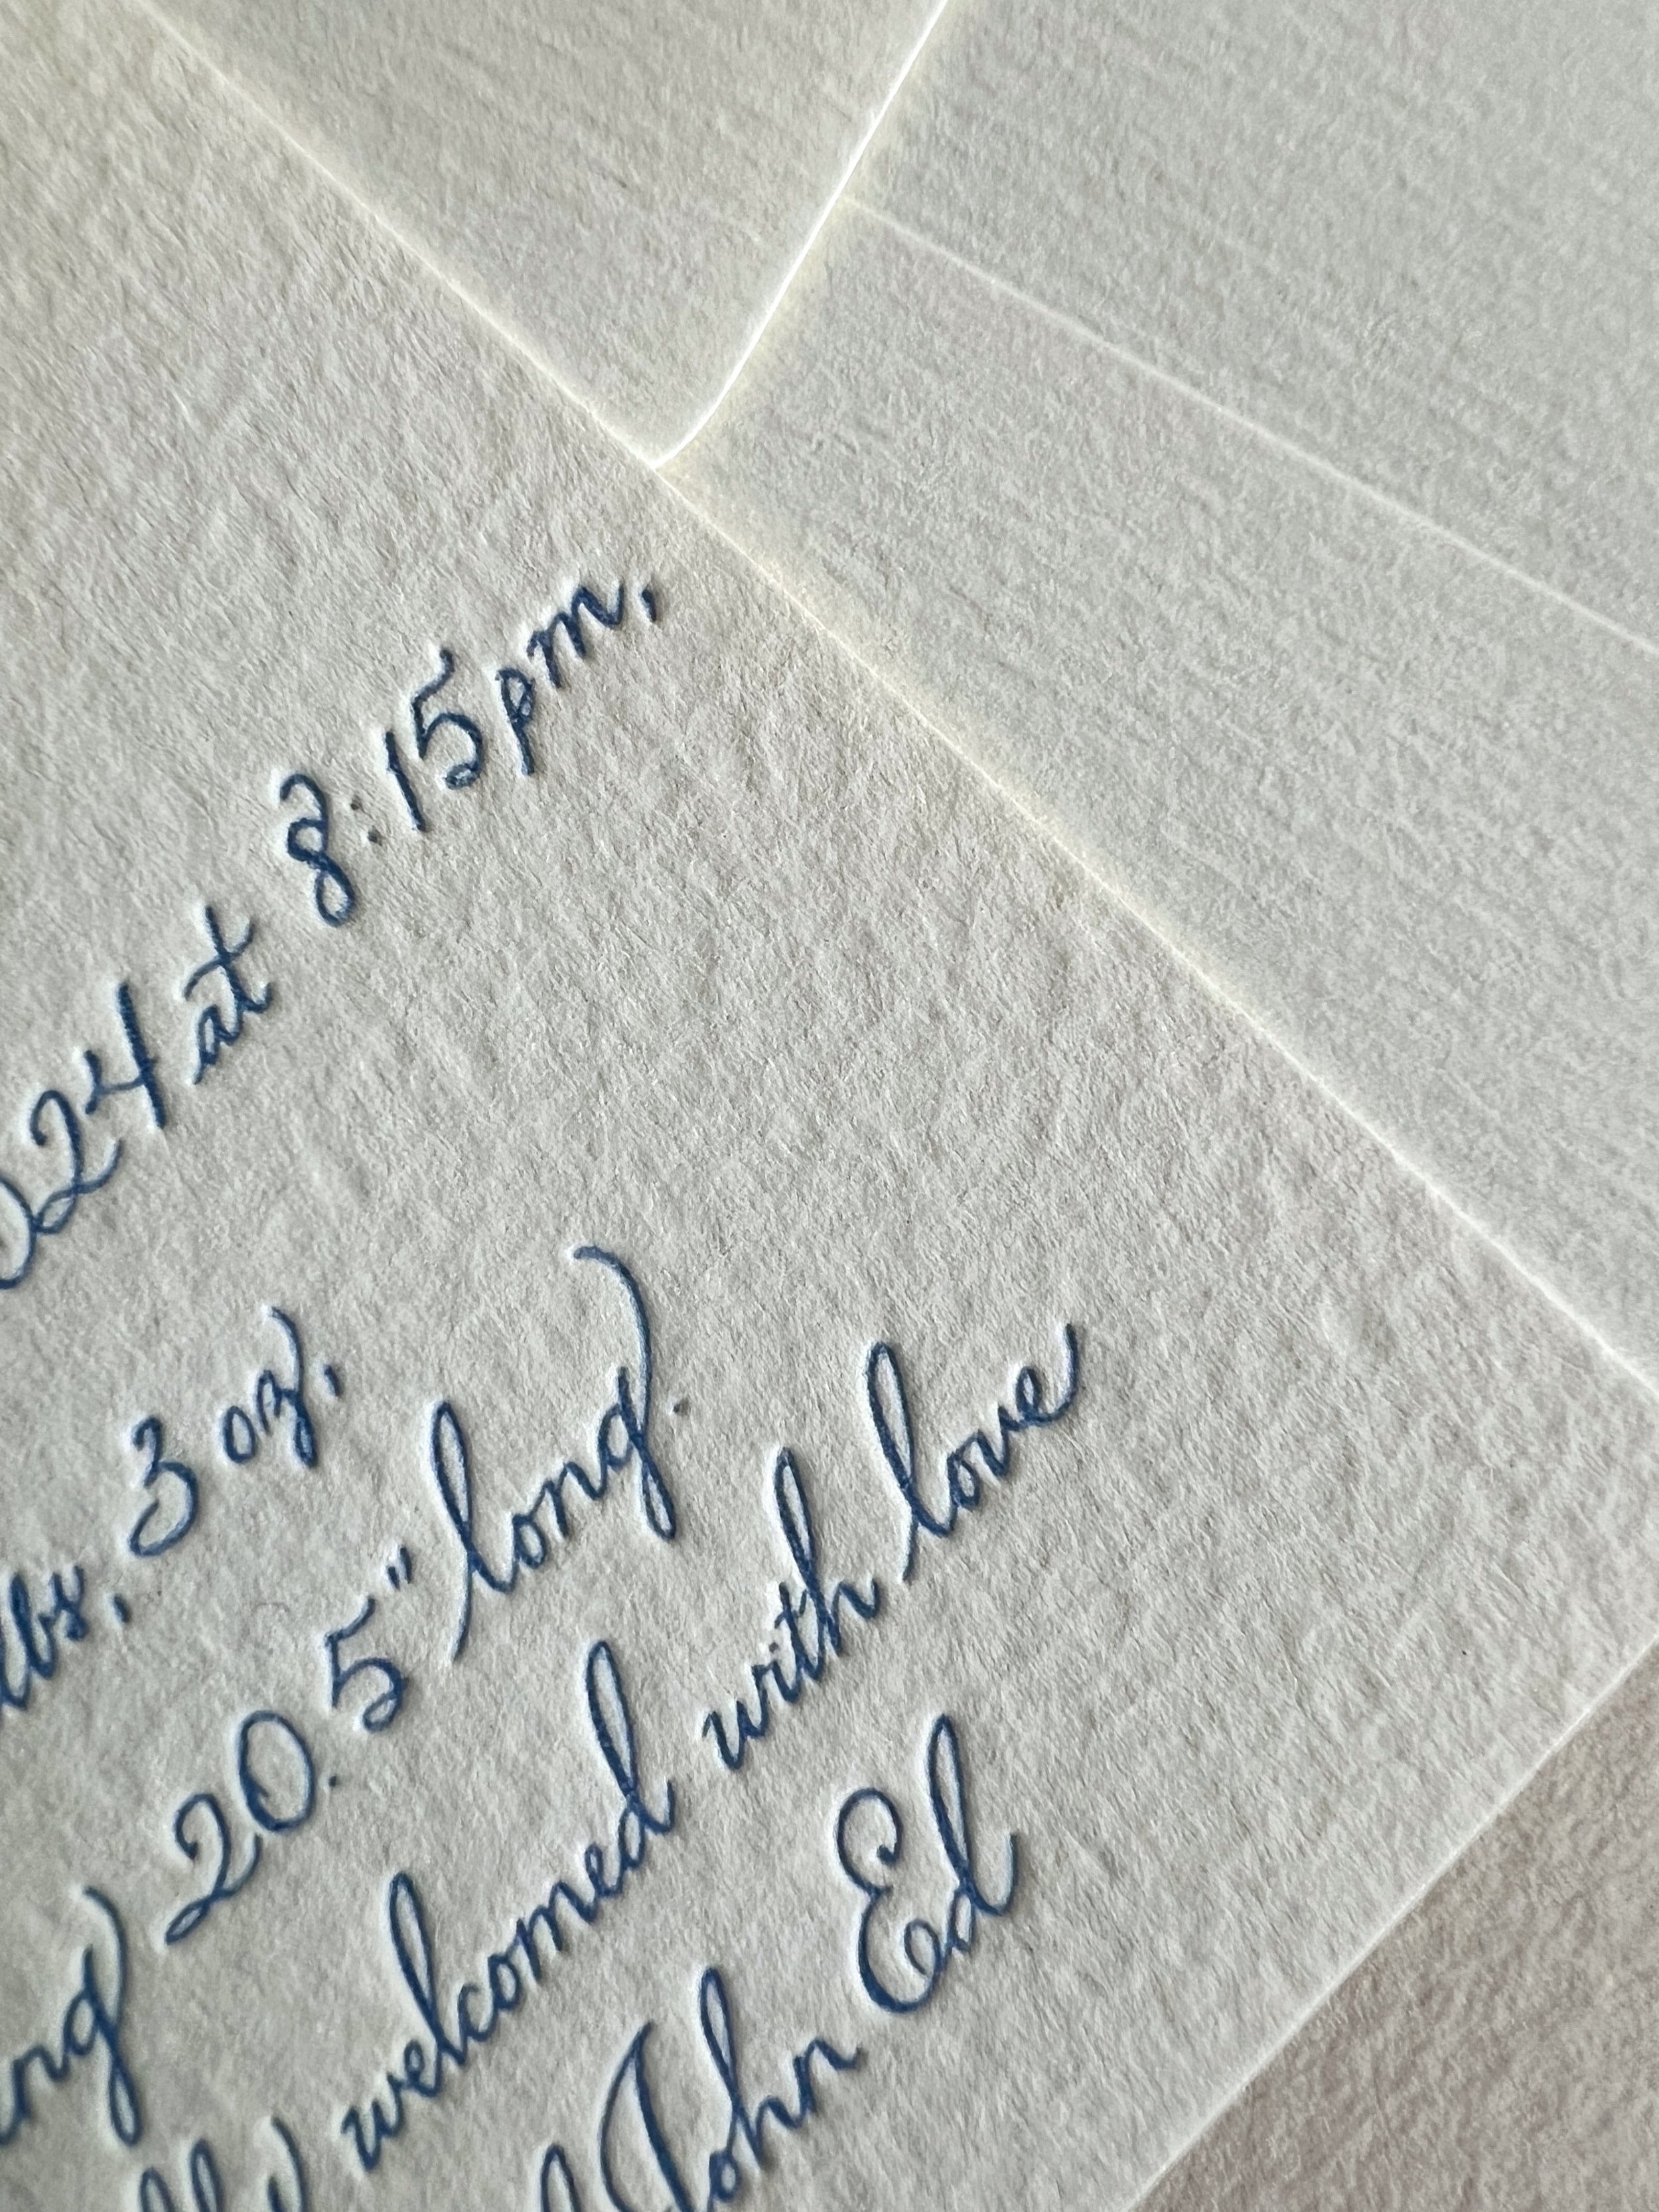 024 at 8:15pm,
lbs, 3 oz,
20.5" long.
welcomed with love
John Ed